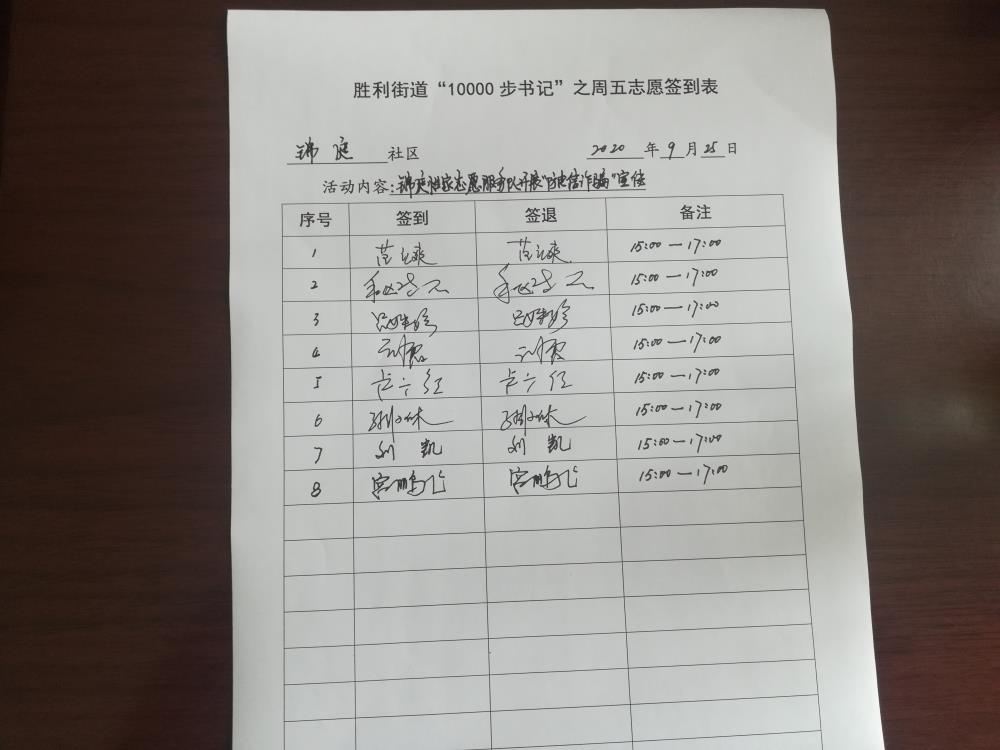 胜利街道“10000 步书记”之周五志愿签到表
锦庭社区 2020年9月25日
活动内容:锦庭社区志愿服务队开展"电信诈骗"宣传
序号 签到 签退 备注
1 15:00—17:00
2 15:00—17:00
3 15:00—17:00
4 刘霞 刘霞 15:00—17:00
5 15:00—17:00
6 15:00—17:00
7 刘凯 刘凯 15:00—17:00
8 宫鹏飞 宫鹏飞 15:00—17:00